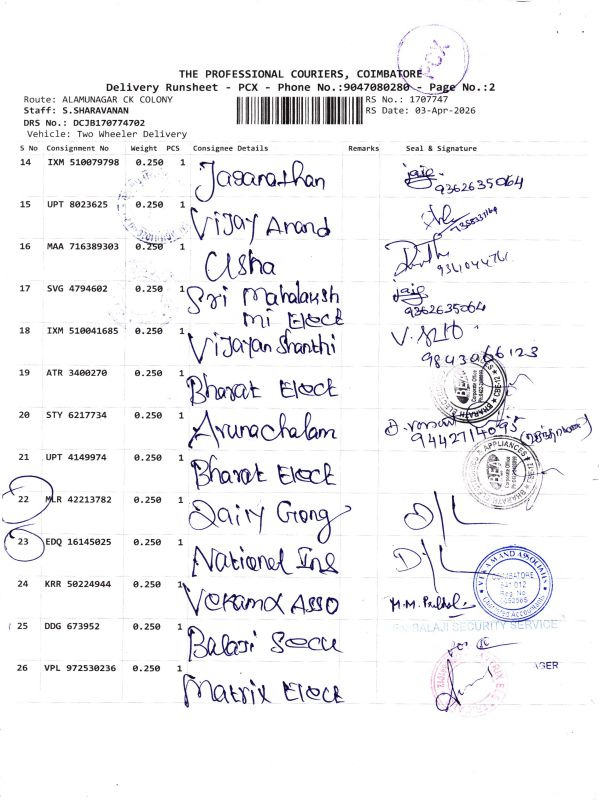 PCX
THE PROFESSIONAL COURIERS, COIMBATORE
Delivery Runsheet - PCX - Phone No.:9047080280 - Page No.:2
Route: ALAMUNAGAR CK COLONY RS No.: 1707747
Staff: S.SHARAVANAN RS Date: 03-Apr-2026
DRS No.: DCJB170774702
Vehicle: Two Wheeler Delivery
S No Consignment No Weight PCS Consignee Details Remarks Seal & Signature
14 IXM 510079798 0.250 1 Jaganathan 9362635064
15 UPT 8023625 0.250 1 Vijay Anand
16 MAA 716389303 0.250 1 Usha
17 SVG 4794602 0.250 1 Sri Mahalaksh
mi Elect 9362635064
18 IXM 510041685 0.250 1 Vijayan Shanthi
9843066123
19 ATR 3400270 0.250 1 Bharat Elect
20 STY 6217734 0.250 1 Arunachalam
9442714095
21 UPT 4149974 0.250 1 Bharat Elect
22 MLR 42213782 0.250 1 Dairy Gong
23 EDQ 16145025 0.250 1 National Ins
24 KRR 50224944 0.250 1 Vekamd Asso
COIMBATORE
641 012
Reg. No
Chartered Accountants
25 DDG 673952 0.250 1 Balaji Secu
BALAJI SECURITY SERVICE
26 VPL 972530236 0.250 1 Matrix Elect